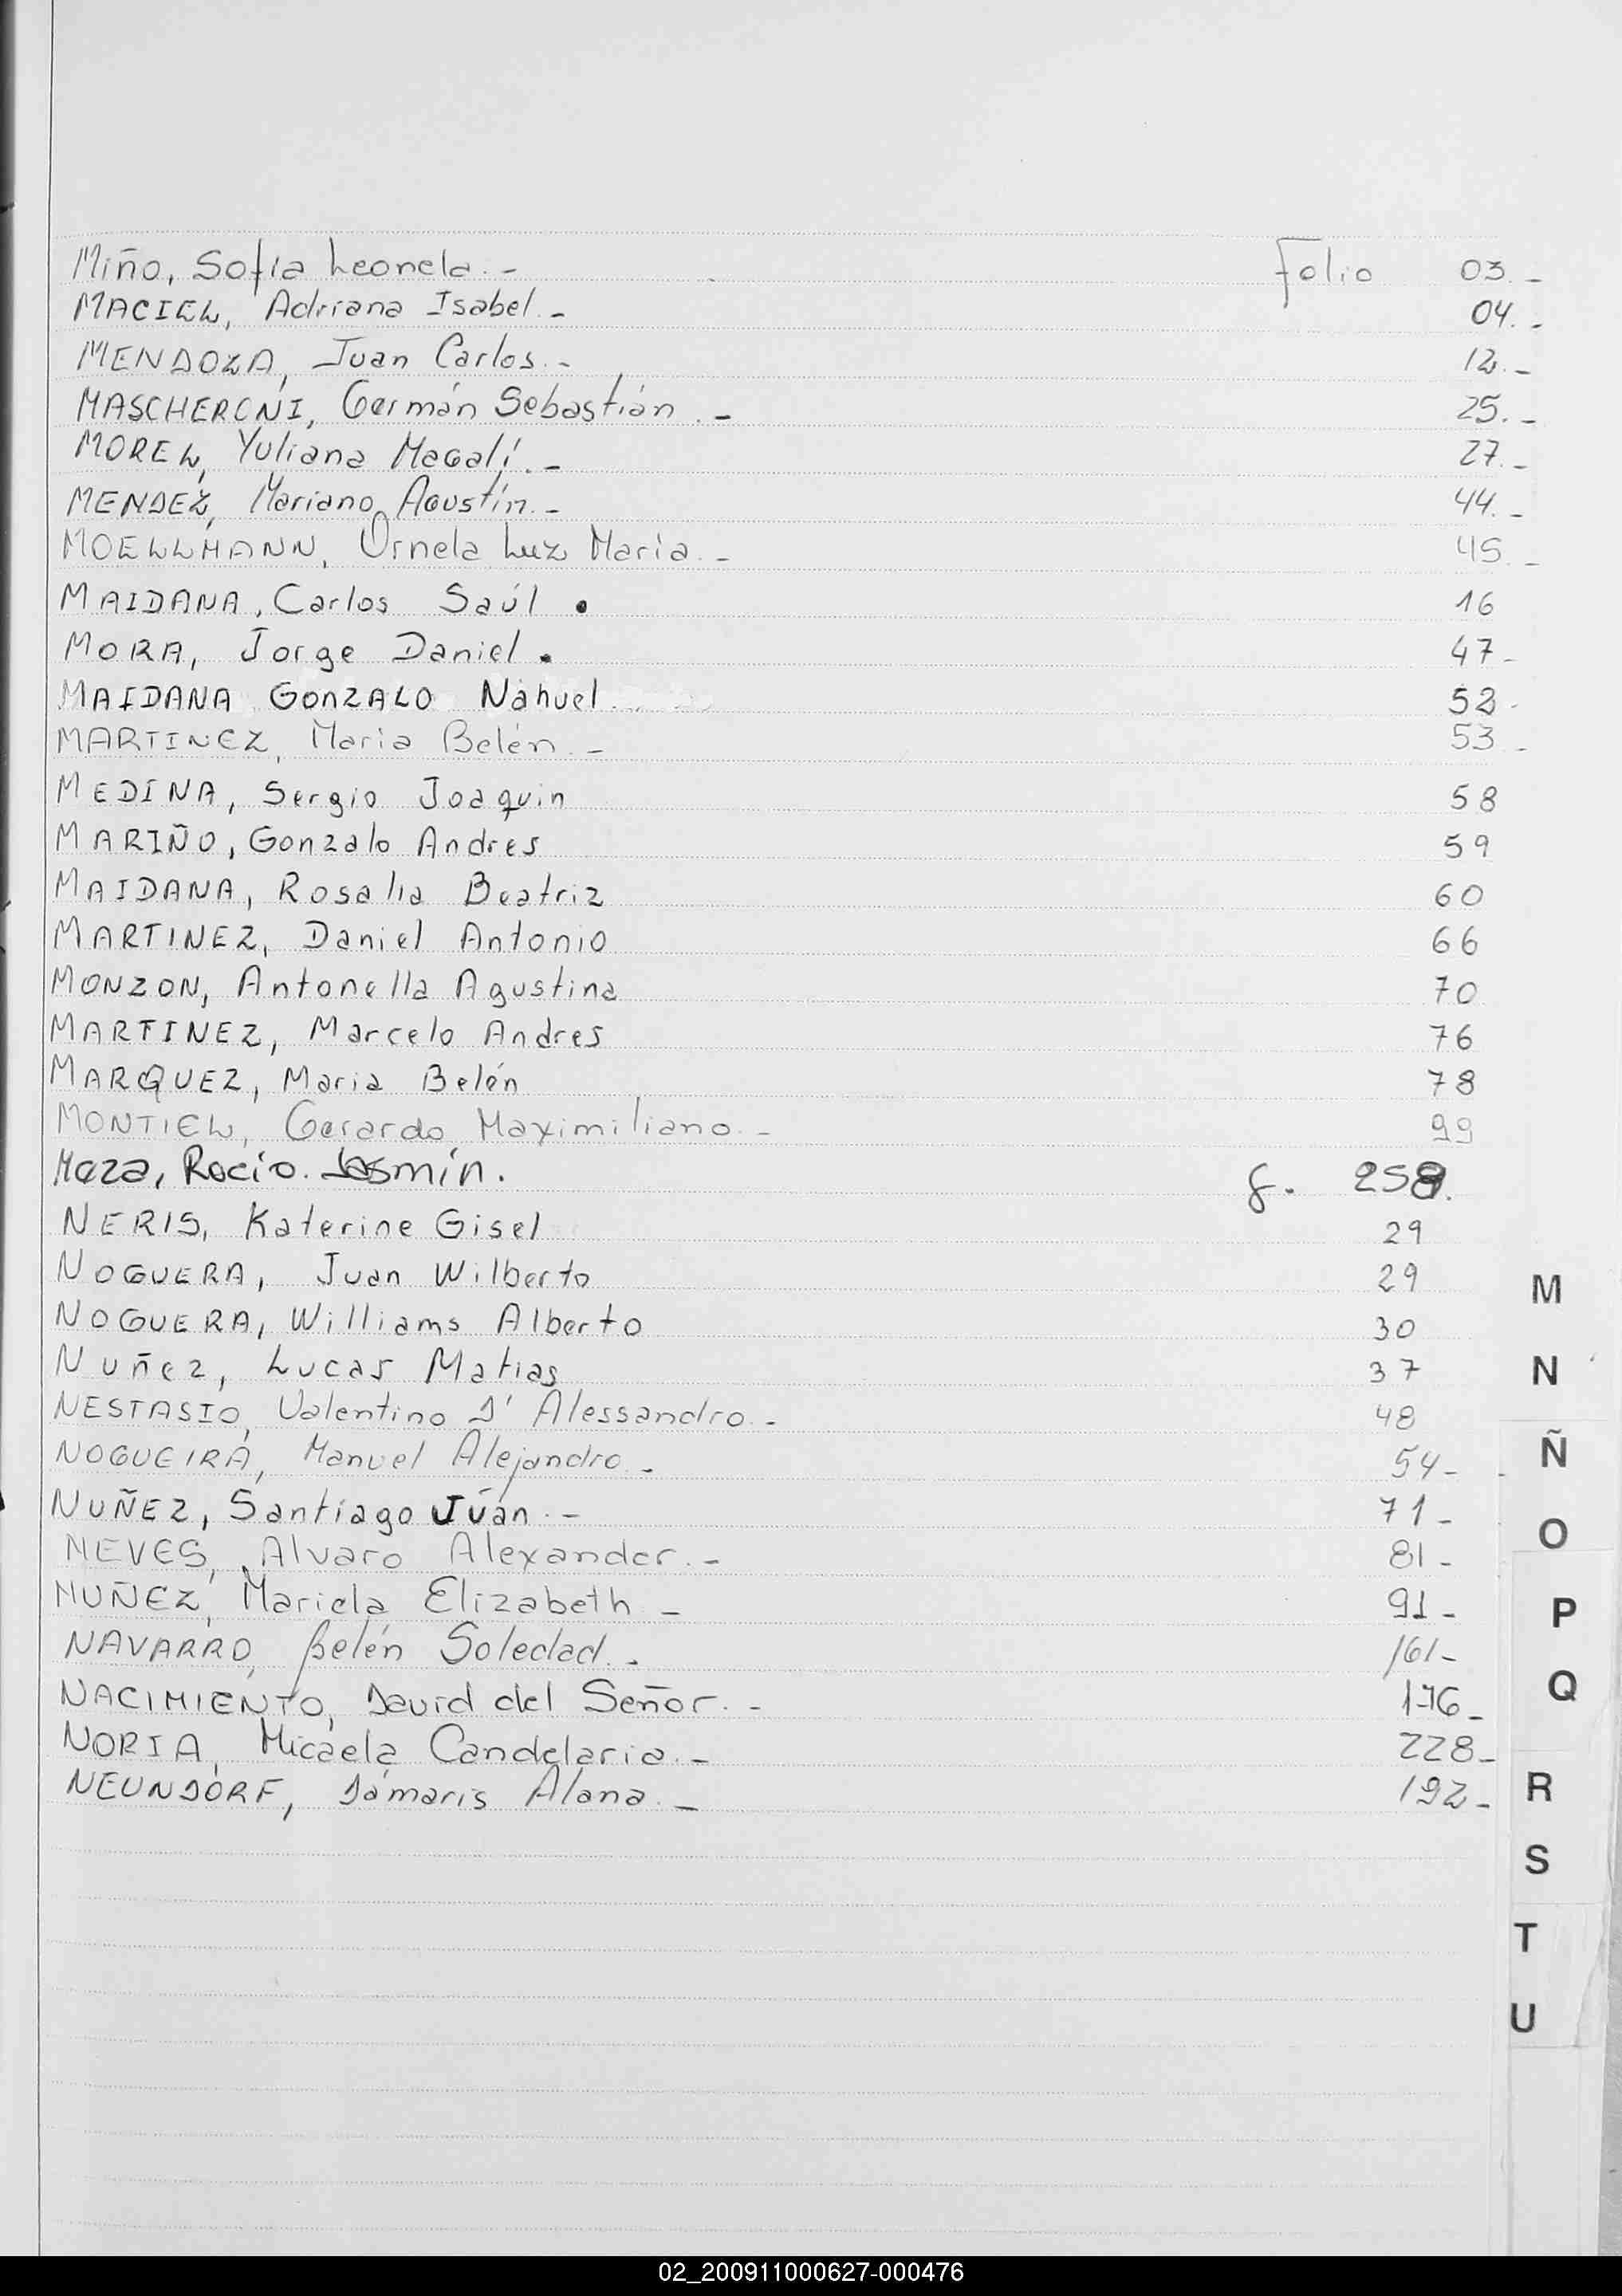 Miño, Sofia Leonela.- Folio 03.-
MACIEL, Adriana Isabel.- 04.-
MENDOZA, Juan Carlos.- 12.-
MASCHERONI, Germán Sebastián.- 25.-
MOREL, Yuliana Magalí.- 27.-
MENDEZ, Mariano Agustín.- 44.-
MOELLMANN, Ornela Luz María.- 45.-
MAIDANA, Carlos Saúl. 16
MORA, Jorge Daniel. 47-
MAIDANA GONZALO Nahuel 52-
MARTINEZ, María Belén.- 53-
MEDINA, Sergio Joaquin 58
MARIÑO, Gonzalo Andres 59
MAIDANA, Rosalia Beatriz 60
MARTINEZ, Daniel Antonio 66
MONZON, Antonella Agustina 70
MARTINEZ, Marcelo Andres 76
MARQUEZ, Maria Belén 78
MONTIEL, Gerardo Maximiliano.- 99
Meza, Rocio. Jasmín. f. 259.
NERIS, Katerine Gisel 29
NOGUERA, Juan Wilberto 29
NOGUERA, Williams Alberto 30
Nuñez, Lucas Matias 37
NESTASIO, Valentino D' Alessandro.- 48
NOGUEIRA, Manuel Alejandro.- 54-
NUÑEZ, Santiago Juán.- 71-
NEVES, Alvaro Alexander.- 81-
NUÑEZ, Mariela Elizabeth- 91-
NAVARRO, Belén Soledad.- 161-
NACIMIENTO, David del Señor.- 176-
NORIA, Micaela Candelaria.- 228-
NEUNDORF, Dámaris Alana.- 192-
M
N
Ñ
O
P
Q
R
S
T
U
02_200911000627-000476